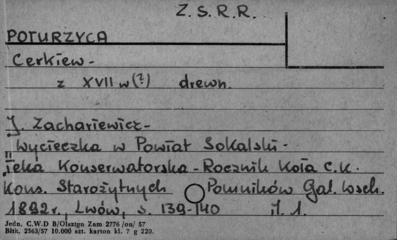 Z.S.R.R.
POTURZYCA
Cerkiew-
z XVII w(?) drewn.
J. Zachariewicz-
Wycieczka w Powiat Sokalski-
Teka Konserwatorska-Rocznik Koła C.K.
Kons. Starożytnych Pomników Gal. Wsch.
1892r., Lwów, s. 139-140 il. 1.
Jedn. C.W.D B/Olsztyn Zam 2776 /on/ 57
Bltk. 2563/57 10.000 szt. karton kl. 7 g 220.